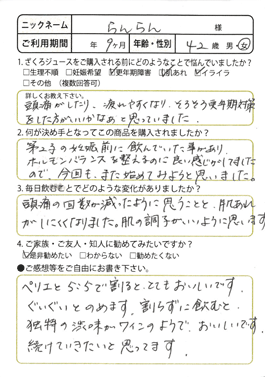 ニックネーム らんらん 様
ご利用期間 年 9ヶ月 年齢・性別 42歳 男・女
1.ざくろジュースをご購入される前にどのようなことで悩んでいましたか？
□生理不順 □妊娠希望 ☑更年期障害 ☑肌あれ ☑イライラ
□その他 （複数回答可）
詳しくお教え下さい。
頭痛がしたり、疲れやすくなり、そろそろ更年期対策
をした方がいいかなぁと思っていました。
2.何が決め手となってこの商品を購入されましたか？
第2子の妊娠前に飲んでいた事があり、
ホルモンバランスを整えるのに良い感じがしてました
ので、今回も、また始めてみようと思いました。
3.毎日飲むことでどのような変化がありましたか？
頭痛の回数が減ったように思うことと、肌あれ
がしにくくなりました。肌の調子がいいように思います
4.ご家族・ご友人・知人に勧めてみたいですか？
☑是非勧めたい □わからない □勧めたくない
●ご感想等をご自由にお書き下さい。
ペリエと5:5で割ると、とてもおいしいです。
ぐいぐいとのめます。割らずに飲むと、
独特の渋味がワインのようで、おいしいです。
続けていきたいと思ってます。